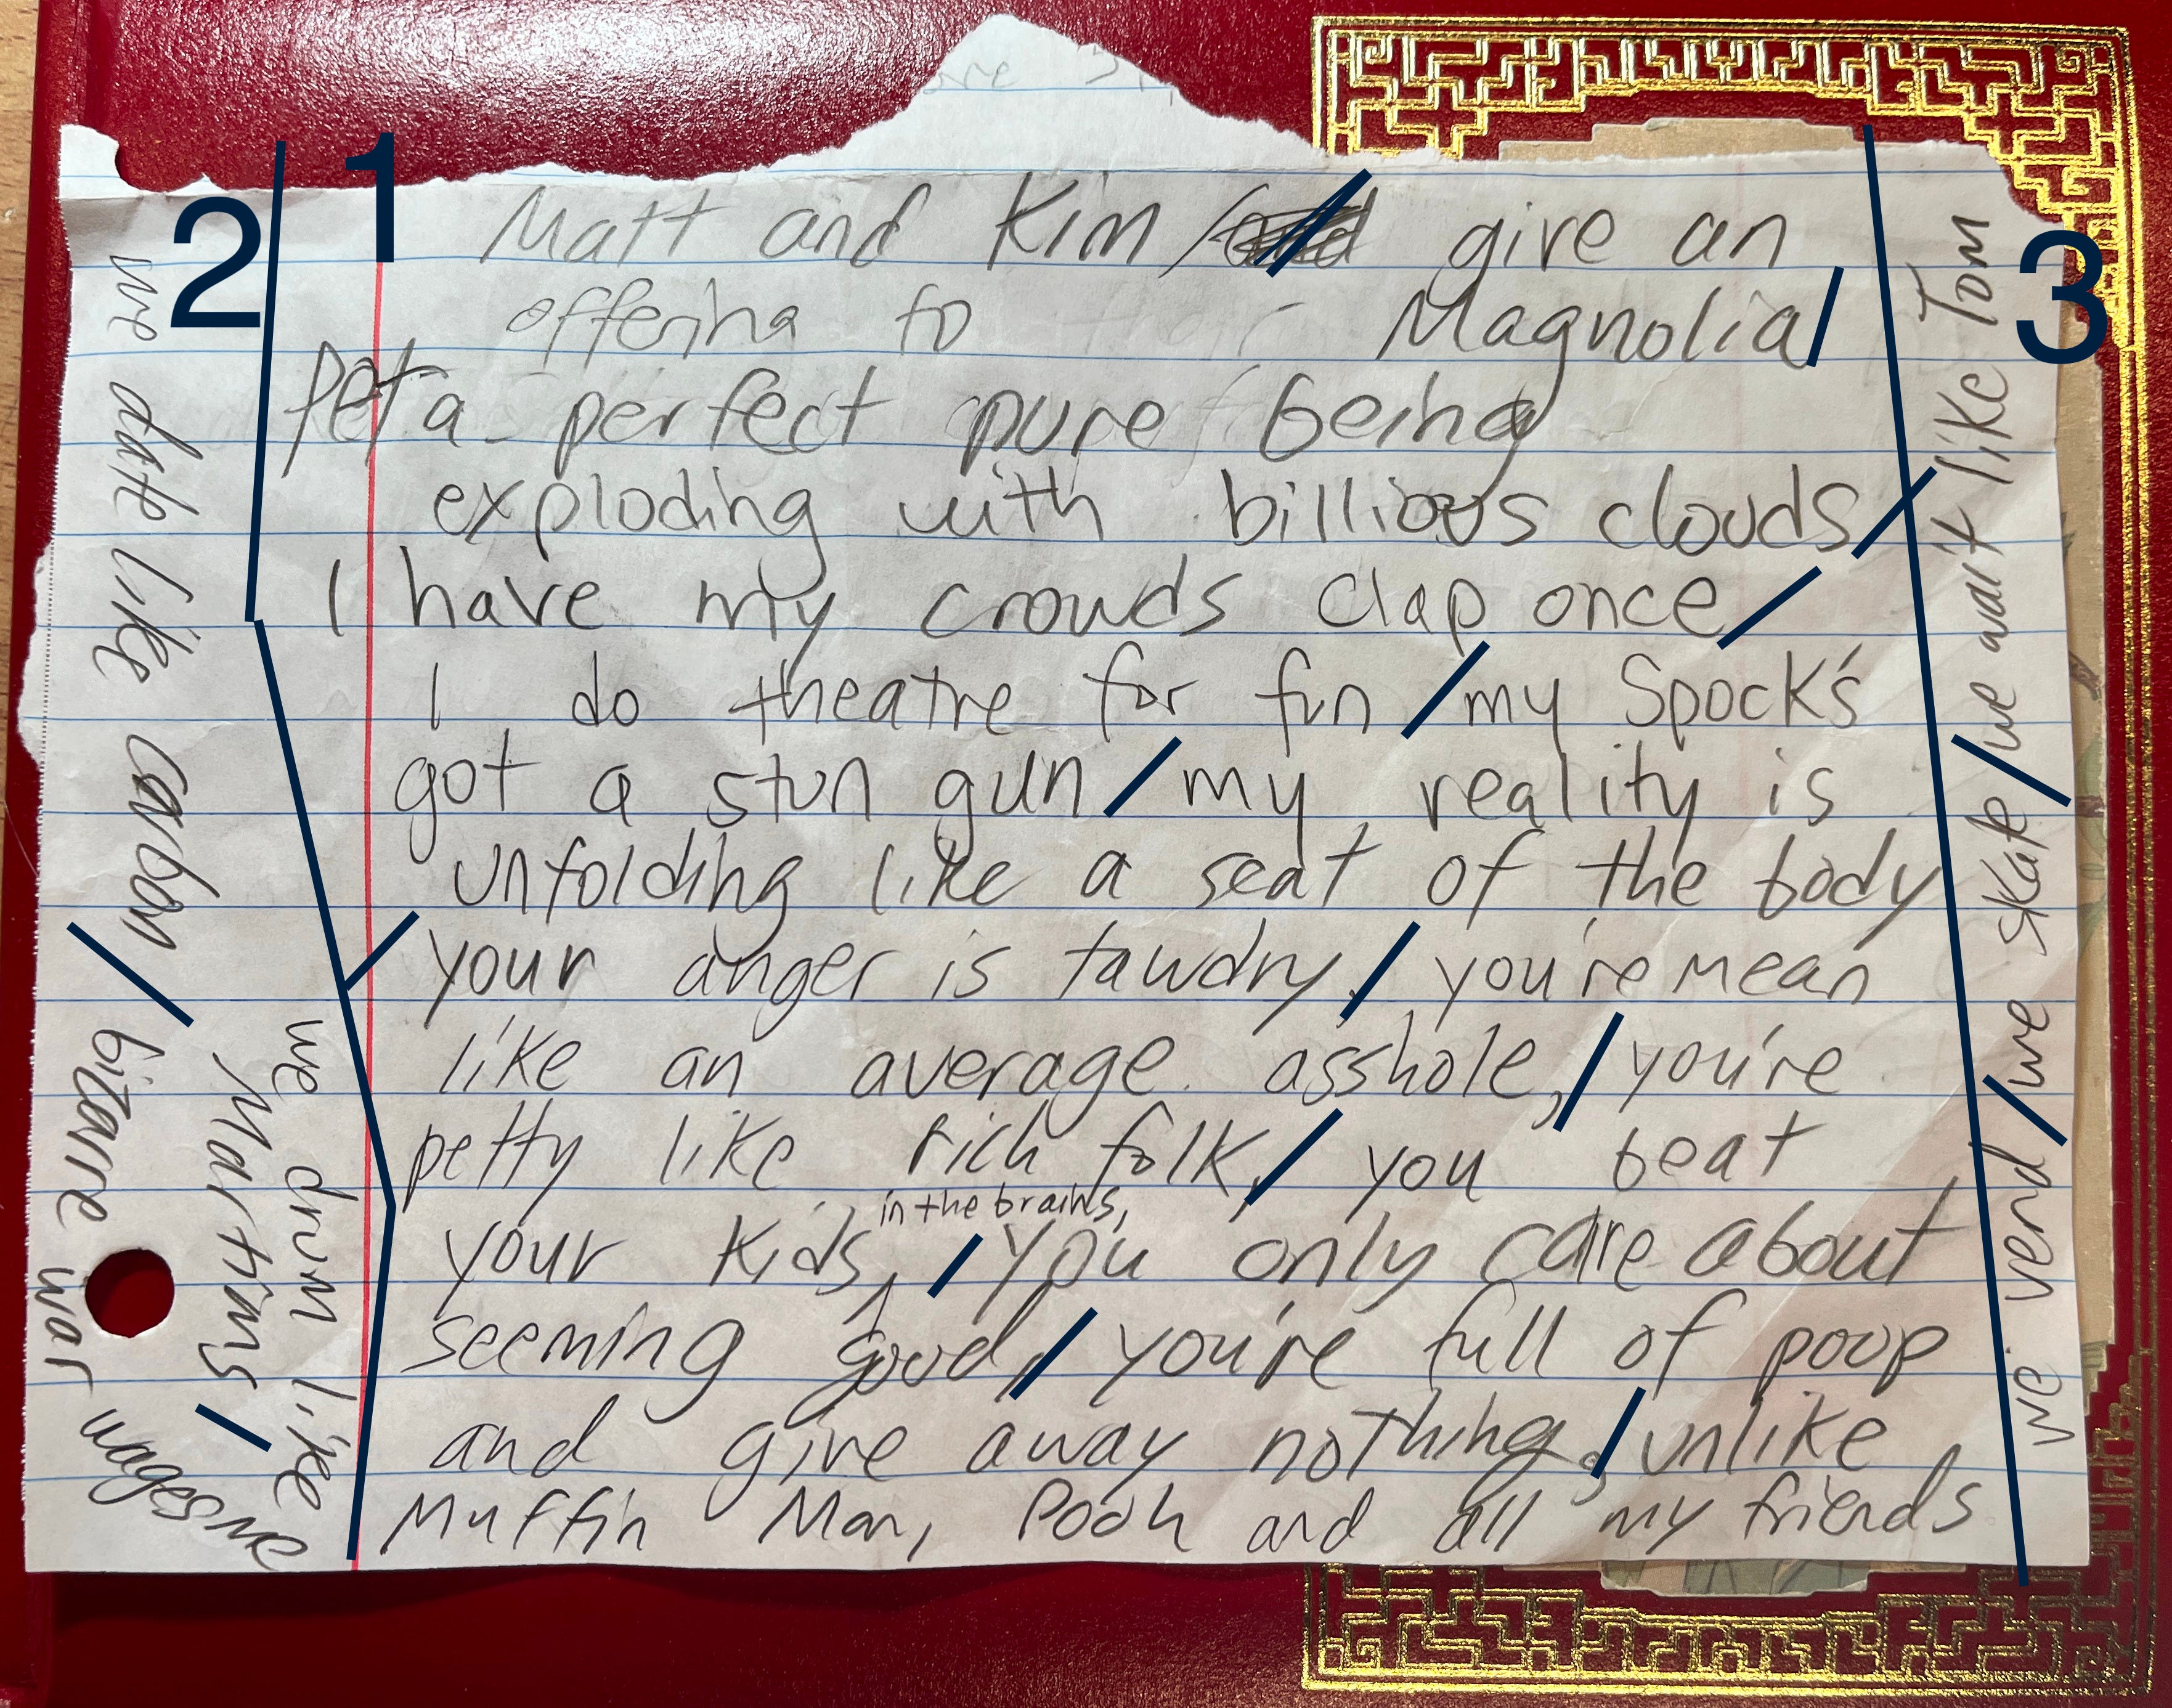 1
Matt and Kim / give an
offering to Magnolia/
Peta perfect pure being
exploding with billious clouds /
I have my crowds clap once /
I do theatre for fun / my Spock's
got a stun gun / my reality is
unfolding like a seat of the body
/ your anger is tawdry, / you're mean
like an average asshole, / you're
petty like rich folk, / you beat
your kids, in the brains, / you only care about
seeming good, / you're full of poop
and give away nothing, / unlike
Muffin Man, Pooh and all my friends
2
we date like carbon /
bizarre war wages
we drum like
Martins /
3
we vend / we skate / we wait like Tom